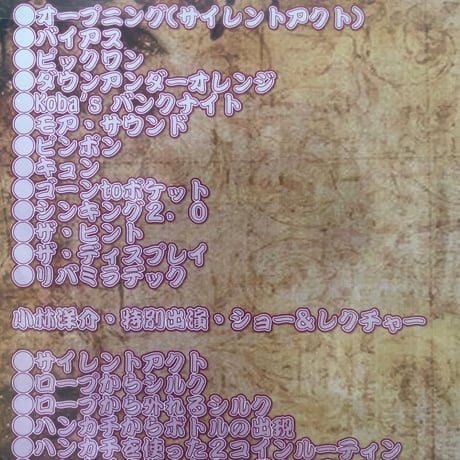 ●オープニング(サイレントアクト)
●バイアス
●ピックワン
●ダウンアンダーオレンジ
●Koba's バンクナイト
●モア・サウンド
●ピンポン
●キョン
●ゴーンtoポケット
●シンキング2.0
●ザ・ヒント
●ザ・ディスプレイ
●リバミラデック
小林洋介・特別出演・ショー&レクチャー
●サイレントアクト
●ロープからシルク
●ロープから外れるシルク
●ハンカチからボトルの出現
●ハンカチを使った2コインルーティン